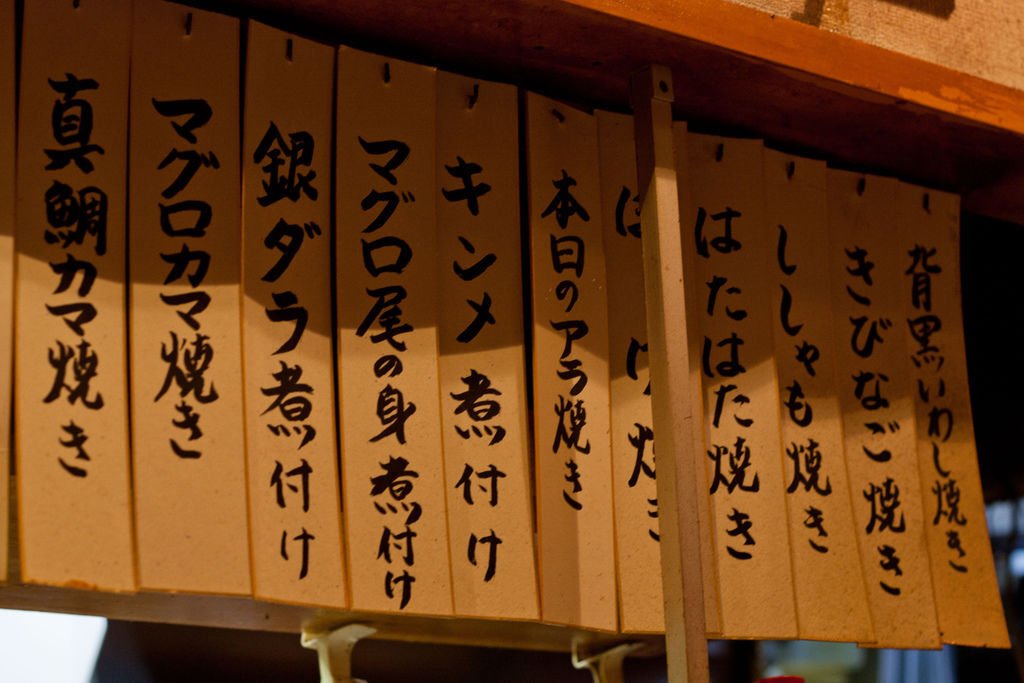 背黒いわし焼き
きびなご焼き
ししゃも焼き
はたはた焼き
本日のアラ焼き
キンメ煮付け
マグロ尾の身煮付け
銀ダラ煮付け
マグロカマ焼き
真鯛カマ焼き